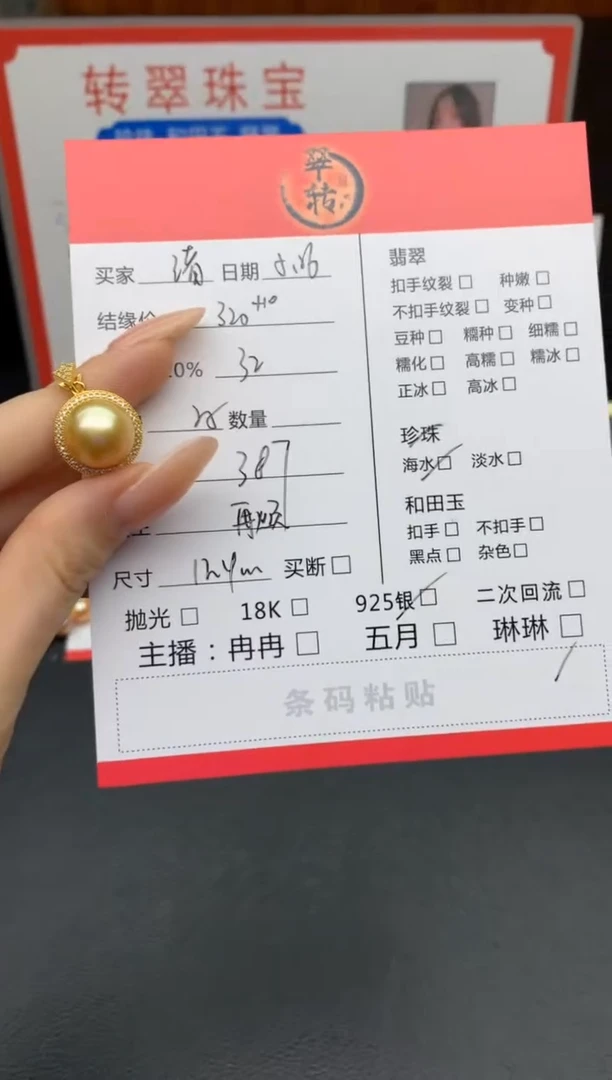 转翠珠宝
翠转
买家 清 日期
结缘价 320 +10
0% 32
数量
387
尺寸 12.4mm 买断□
翡翠
扣手纹裂□ 种嫩□
不扣手纹裂□ 变种□
豆种□ 糯种□ 细糯□
糯化□ 高糯□ 糯冰□
正冰□ 高冰□
珍珠
海水□ 淡水□
和田玉
扣手□ 不扣手□
黑点□ 杂色□
抛光□ 18K□ 925银□ 二次回流□
主播：冉冉□ 五月□ 琳琳□
条码粘贴